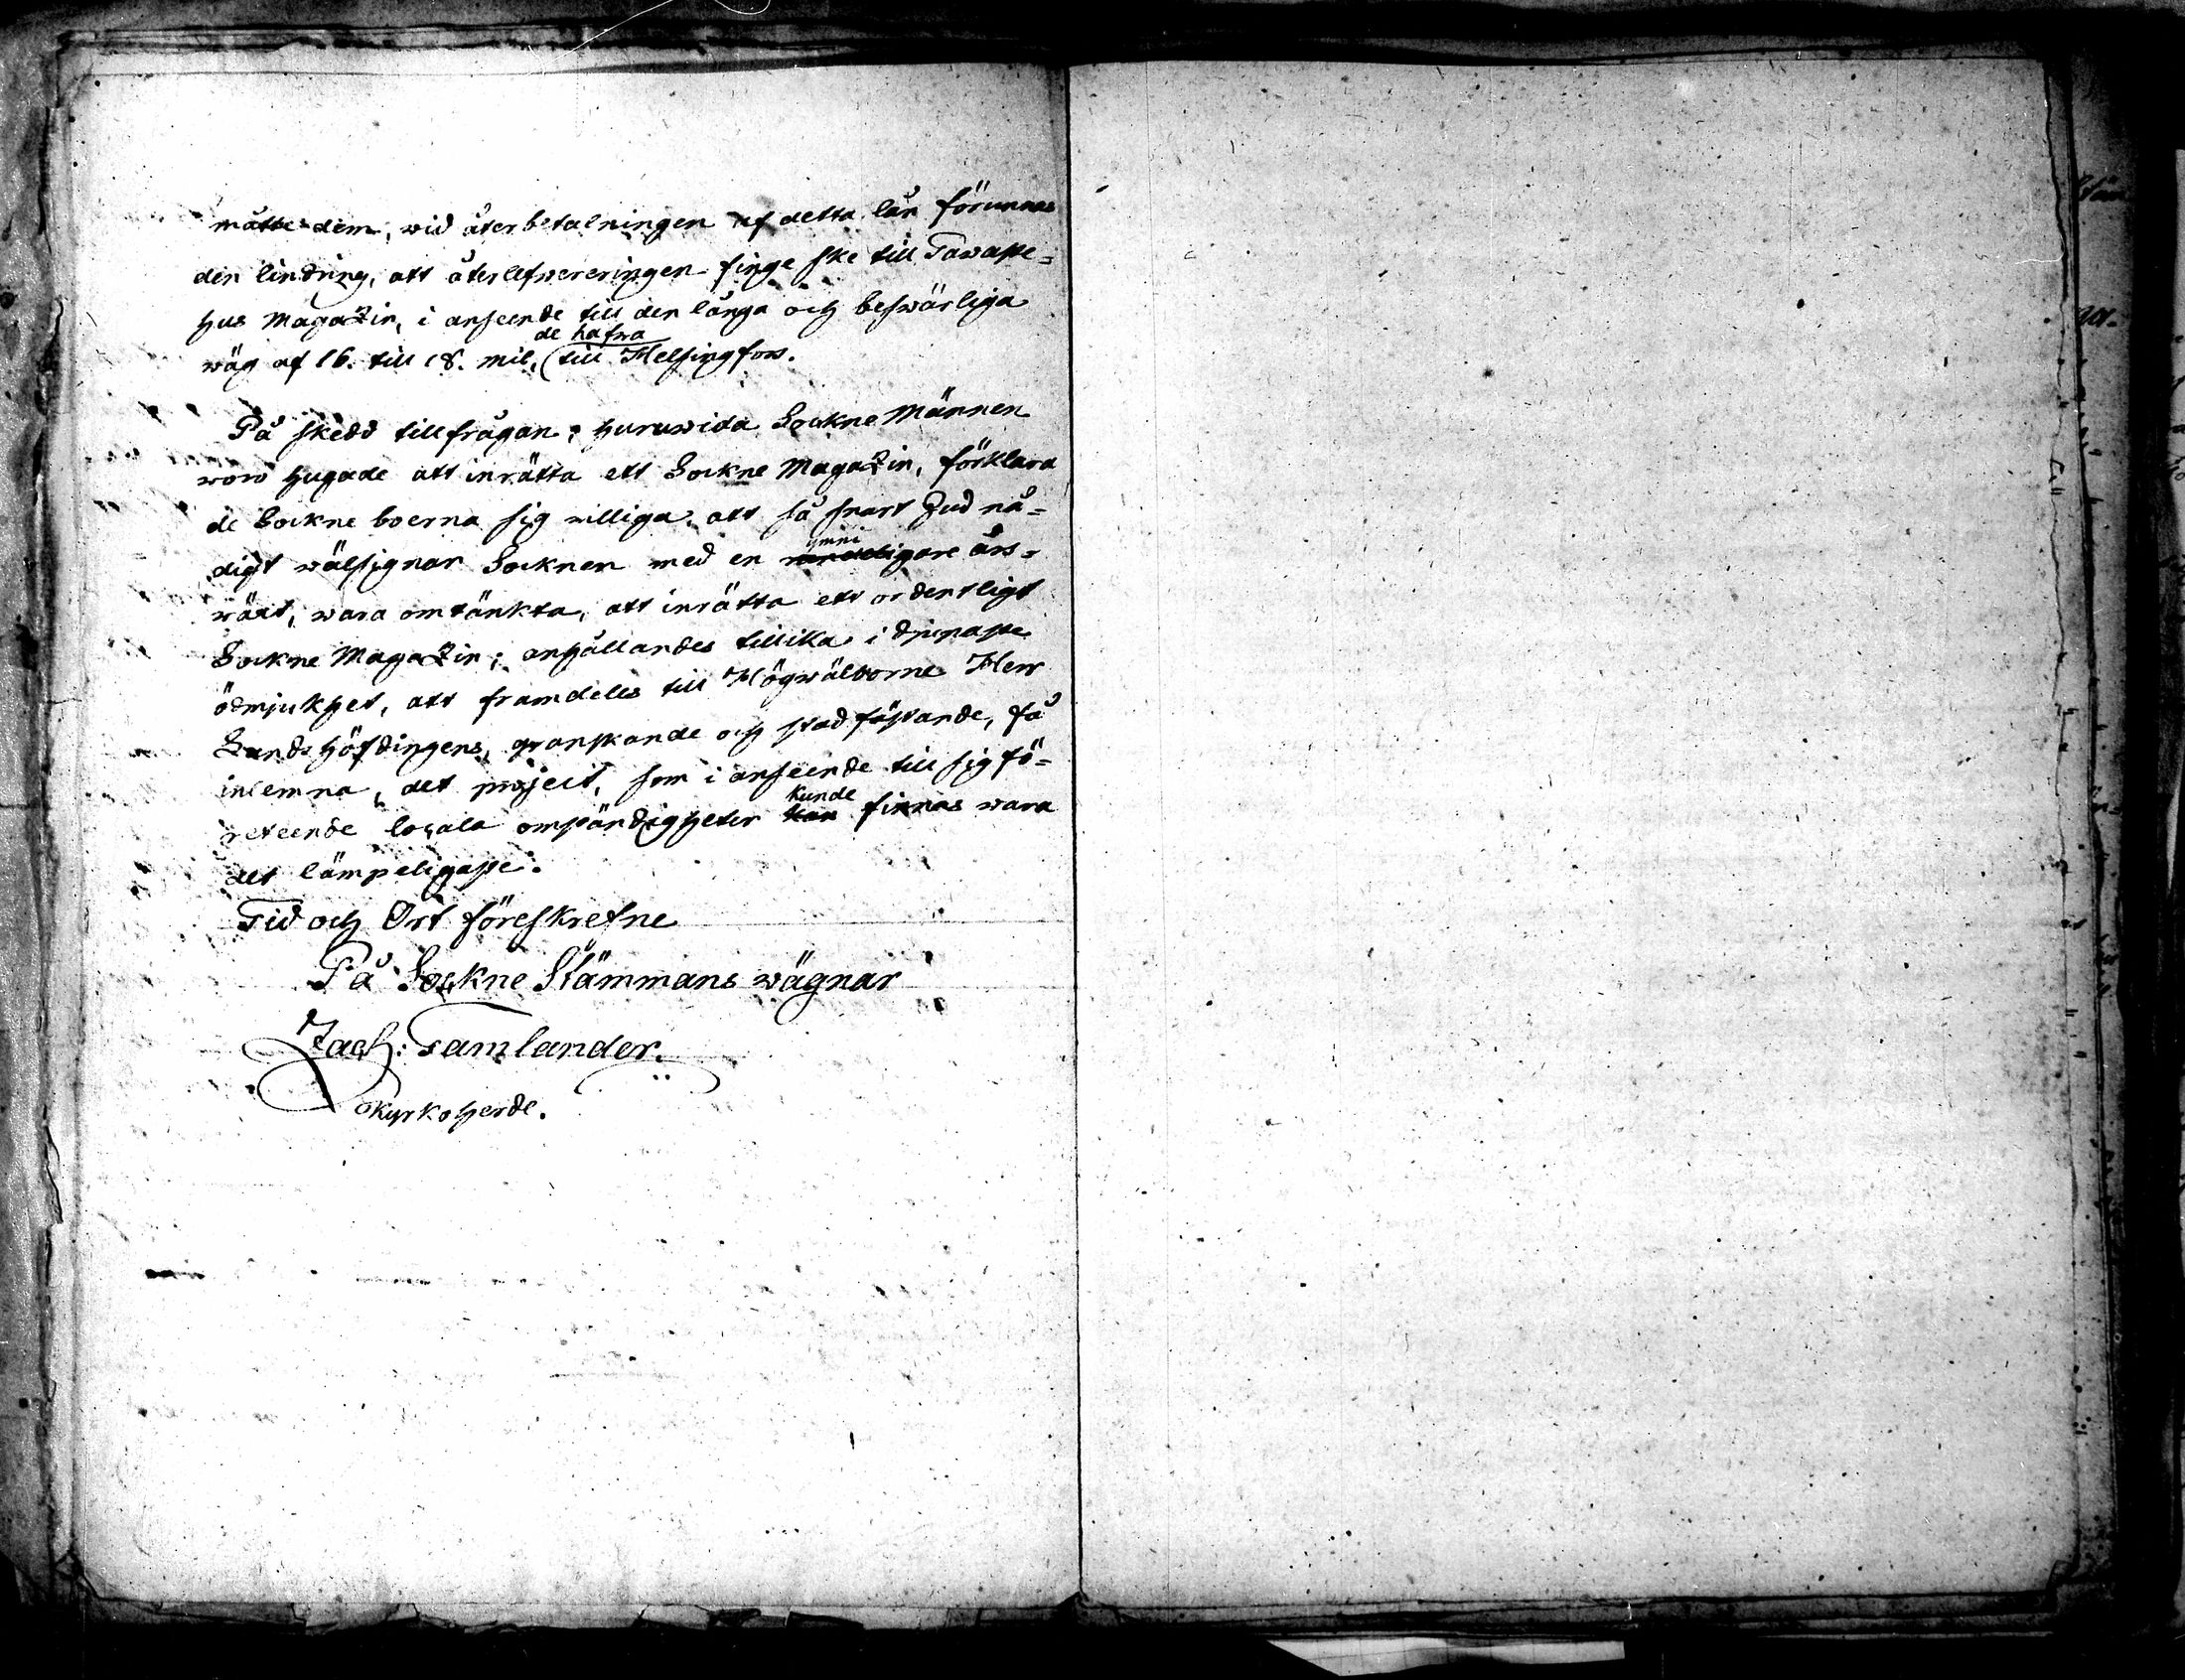 måtte dem, wid återbetalningen af detta lån förunnas
den lindring, att återlefwereringen finge ske till Tawaste=
hus Magazin, i anseende till den långa och beswärliga
de hafwa
wäg af 16. till 18. mil, (till Helsingfors.
På skedd tillfrågan, huruwida Sockne Männen
woro hugade att inrätta ett Sockne Magazin, förklara
de Sockne boerna sig williga, att så snart Gud nå=
digt wälsignar Socknen med en ymnigare års=
wäxt, wara omtänkta, att inrätta ett ordentligt
Sockne Magazin; anhållandes tillika i djupaste
ödmjukhet, att framdeles till Högwälborne Herr
Landshöfdingens, granskande och stadfästande, få
inlemna, det project, som i anseende till sig fö=
kunde
reteende locala omständigheter kan finnas wara
det lämpeligaste.
Tid och Ort föreskrefne
På Sockne Stämmans wägnar
Zach: Tamlander.
Kyrkoherde.